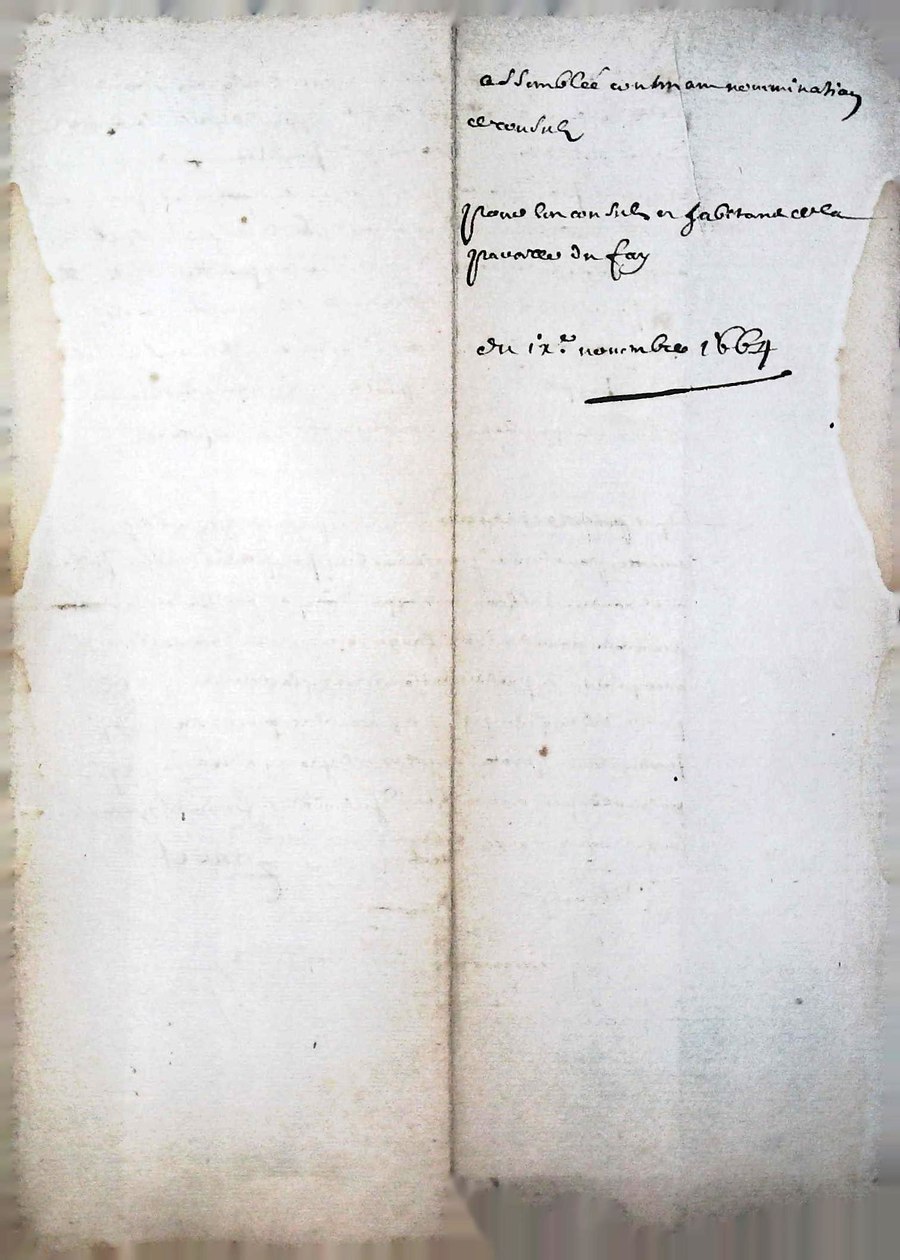 assemblée contenant nommination
de consulz
pour les consulz et habitans de la
paroisse du fay
du ixe novembre 1664